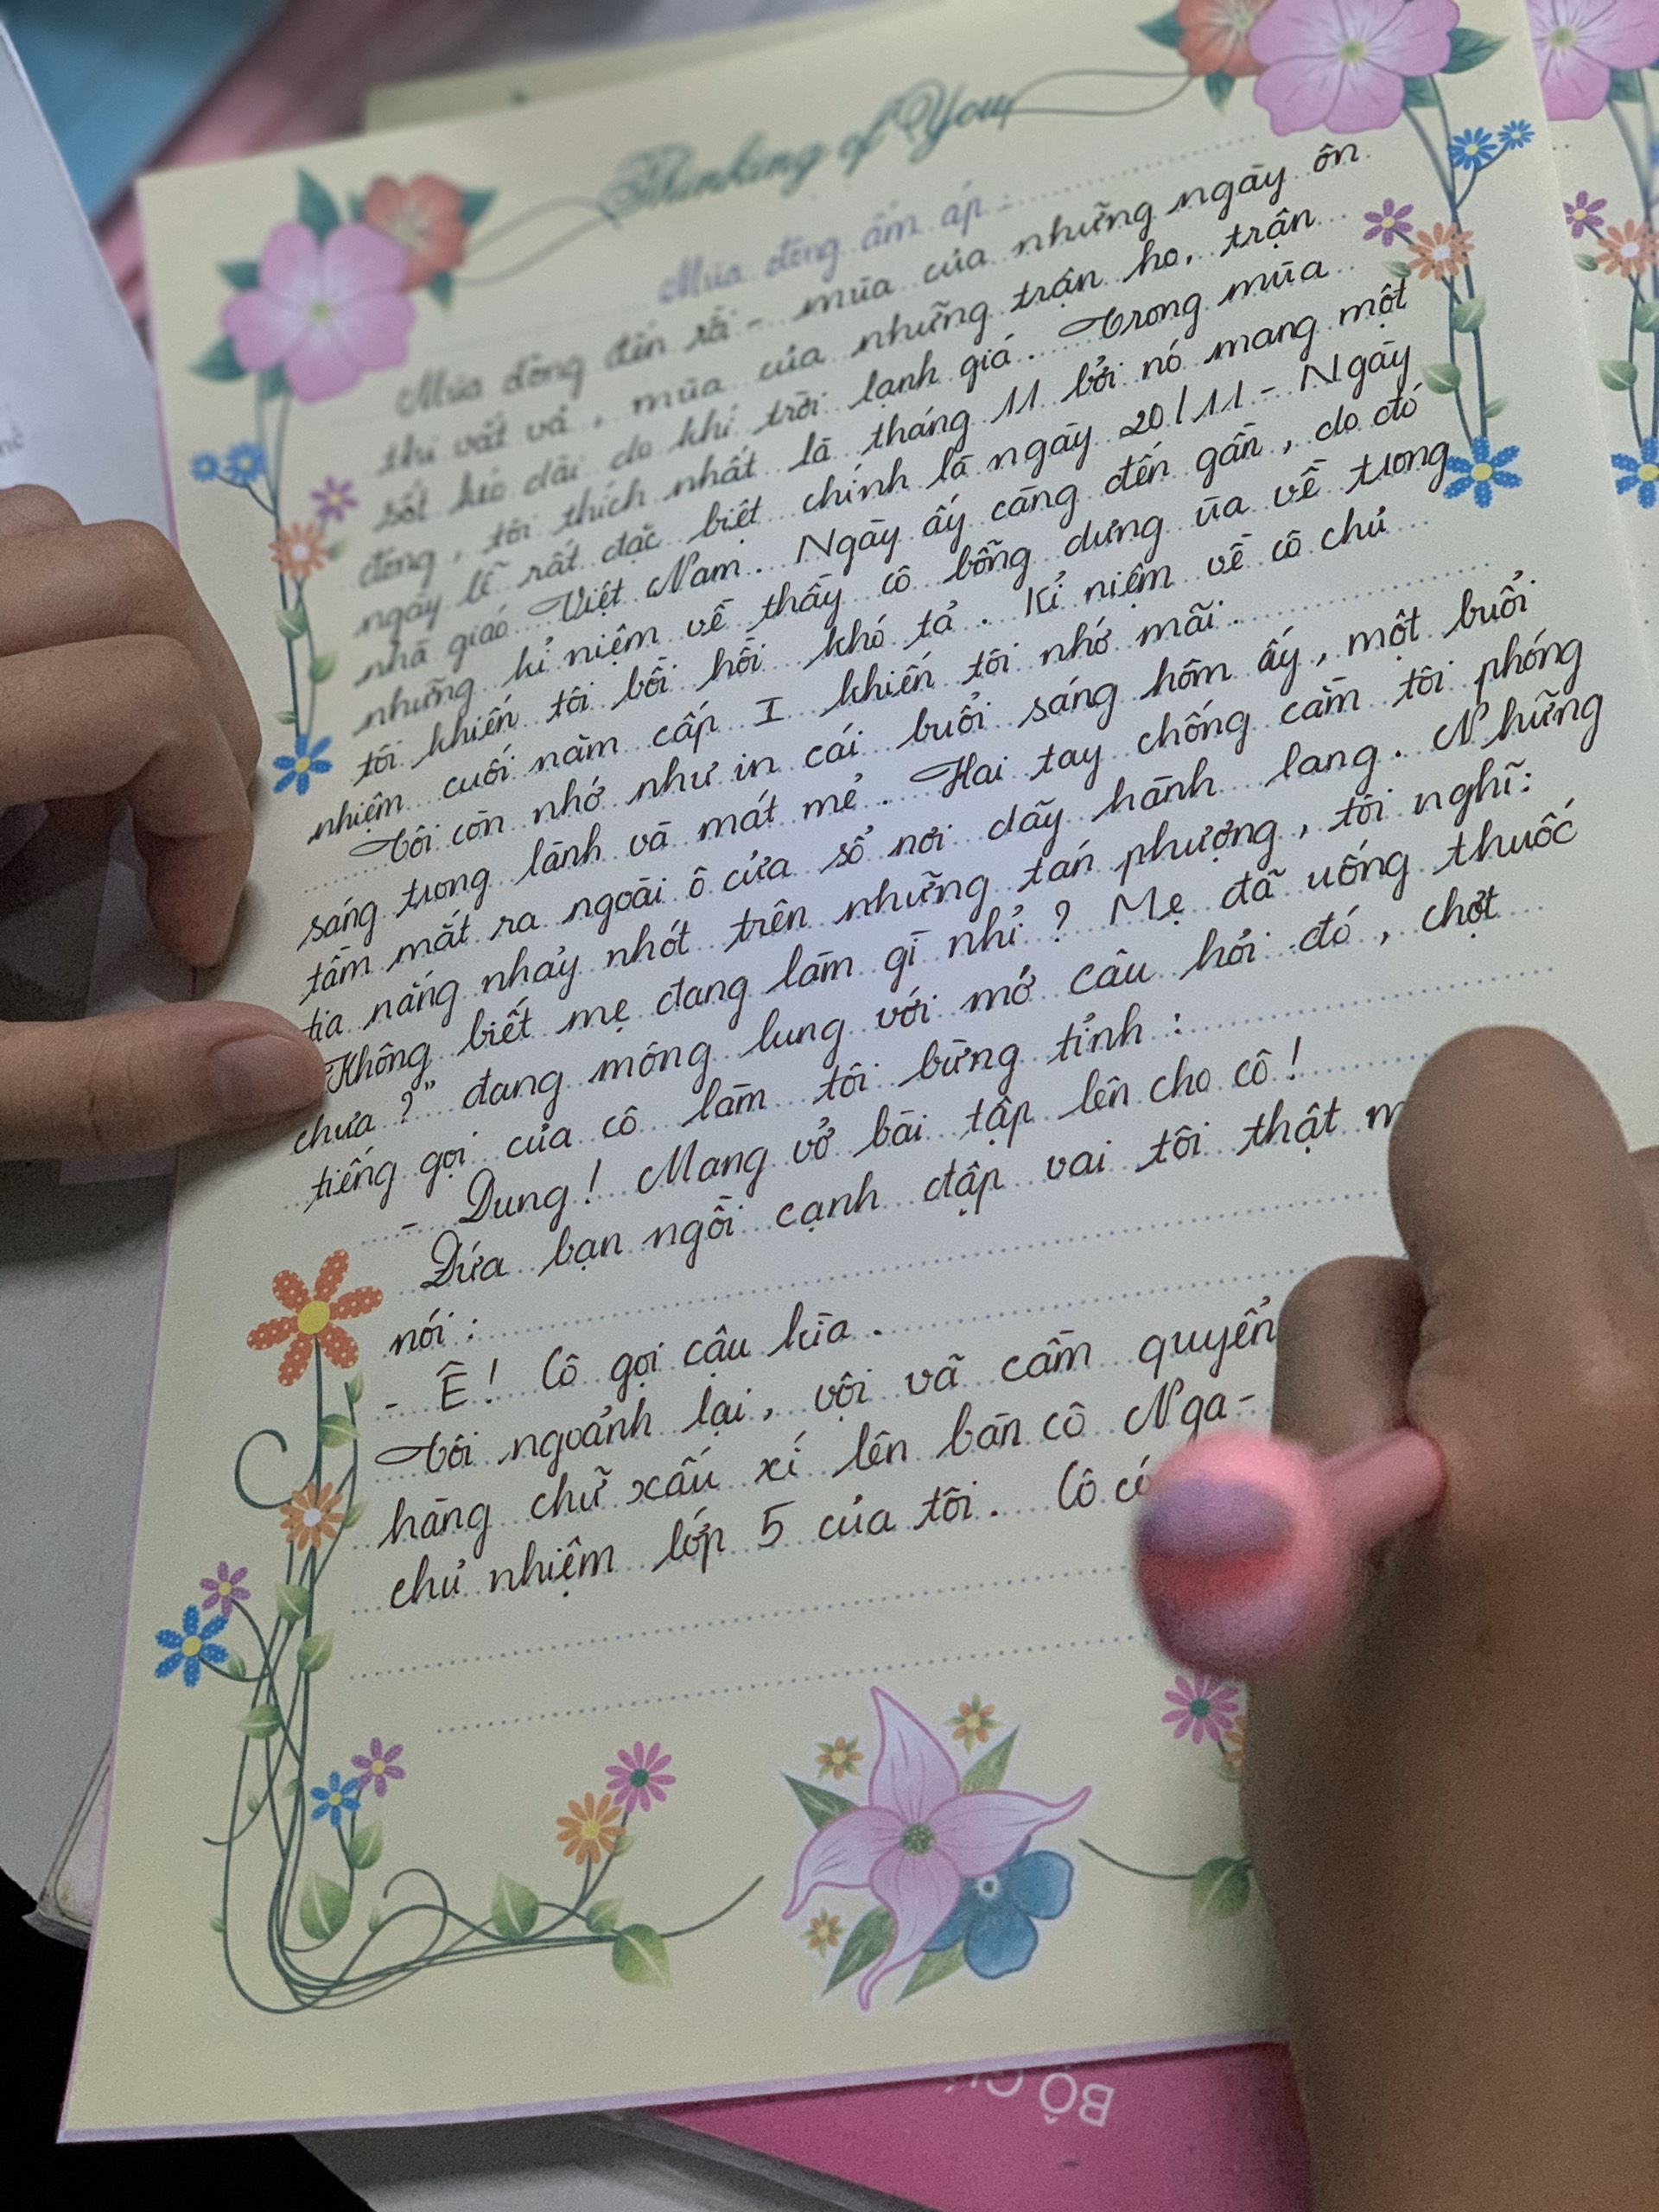 Thinking of You
Mùa đông ấm áp
Mùa đông đến rồi - mùa của những ngày ôn
thi vất vả, mùa của những trận ho, trận
sốt kéo dài do khí trời lạnh giá. Trong mùa
đông, tôi thích nhất là tháng 11 bởi nó mang một
ngày lễ rất đặc biệt chính là ngày 20/11 - Ngày
nhà giáo Việt Nam. Ngày ấy càng đến gần, do đó
những kỉ niệm về thầy cô bỗng dưng ùa về trong
tôi khiến tôi bồi hồi khó tả. Kỉ niệm về cô chủ
nhiệm cuối năm cấp I khiến tôi nhớ mãi.
Tôi còn nhớ như in cái buổi sáng hôm ấy, một buổi
sáng trong lành và mát mẻ. Hai tay chống cằm tôi phóng
tầm mắt ra ngoài ô cửa sổ nơi dãy hành lang. Những
tia nắng nhảy nhót trên những tán phượng, tôi nghĩ:
"Không biết mẹ đang làm gì nhỉ? Mẹ đã uống thuốc
chưa?" đang mông lung với mớ câu hỏi đó, chợt
tiếng gọi của cô làm tôi bừng tỉnh:
- Dung! Mang vở bài tập lên cho cô!
Đứa bạn ngồi cạnh đập vai tôi thật
nói:
- Ê! Cô gọi cậu kìa.
Tôi ngoảnh lại, vội vã cầm quyển
hàng chữ xấu xí lên bàn cô Nga -
chủ nhiệm lớp 5 của tôi. Cô
BỘ